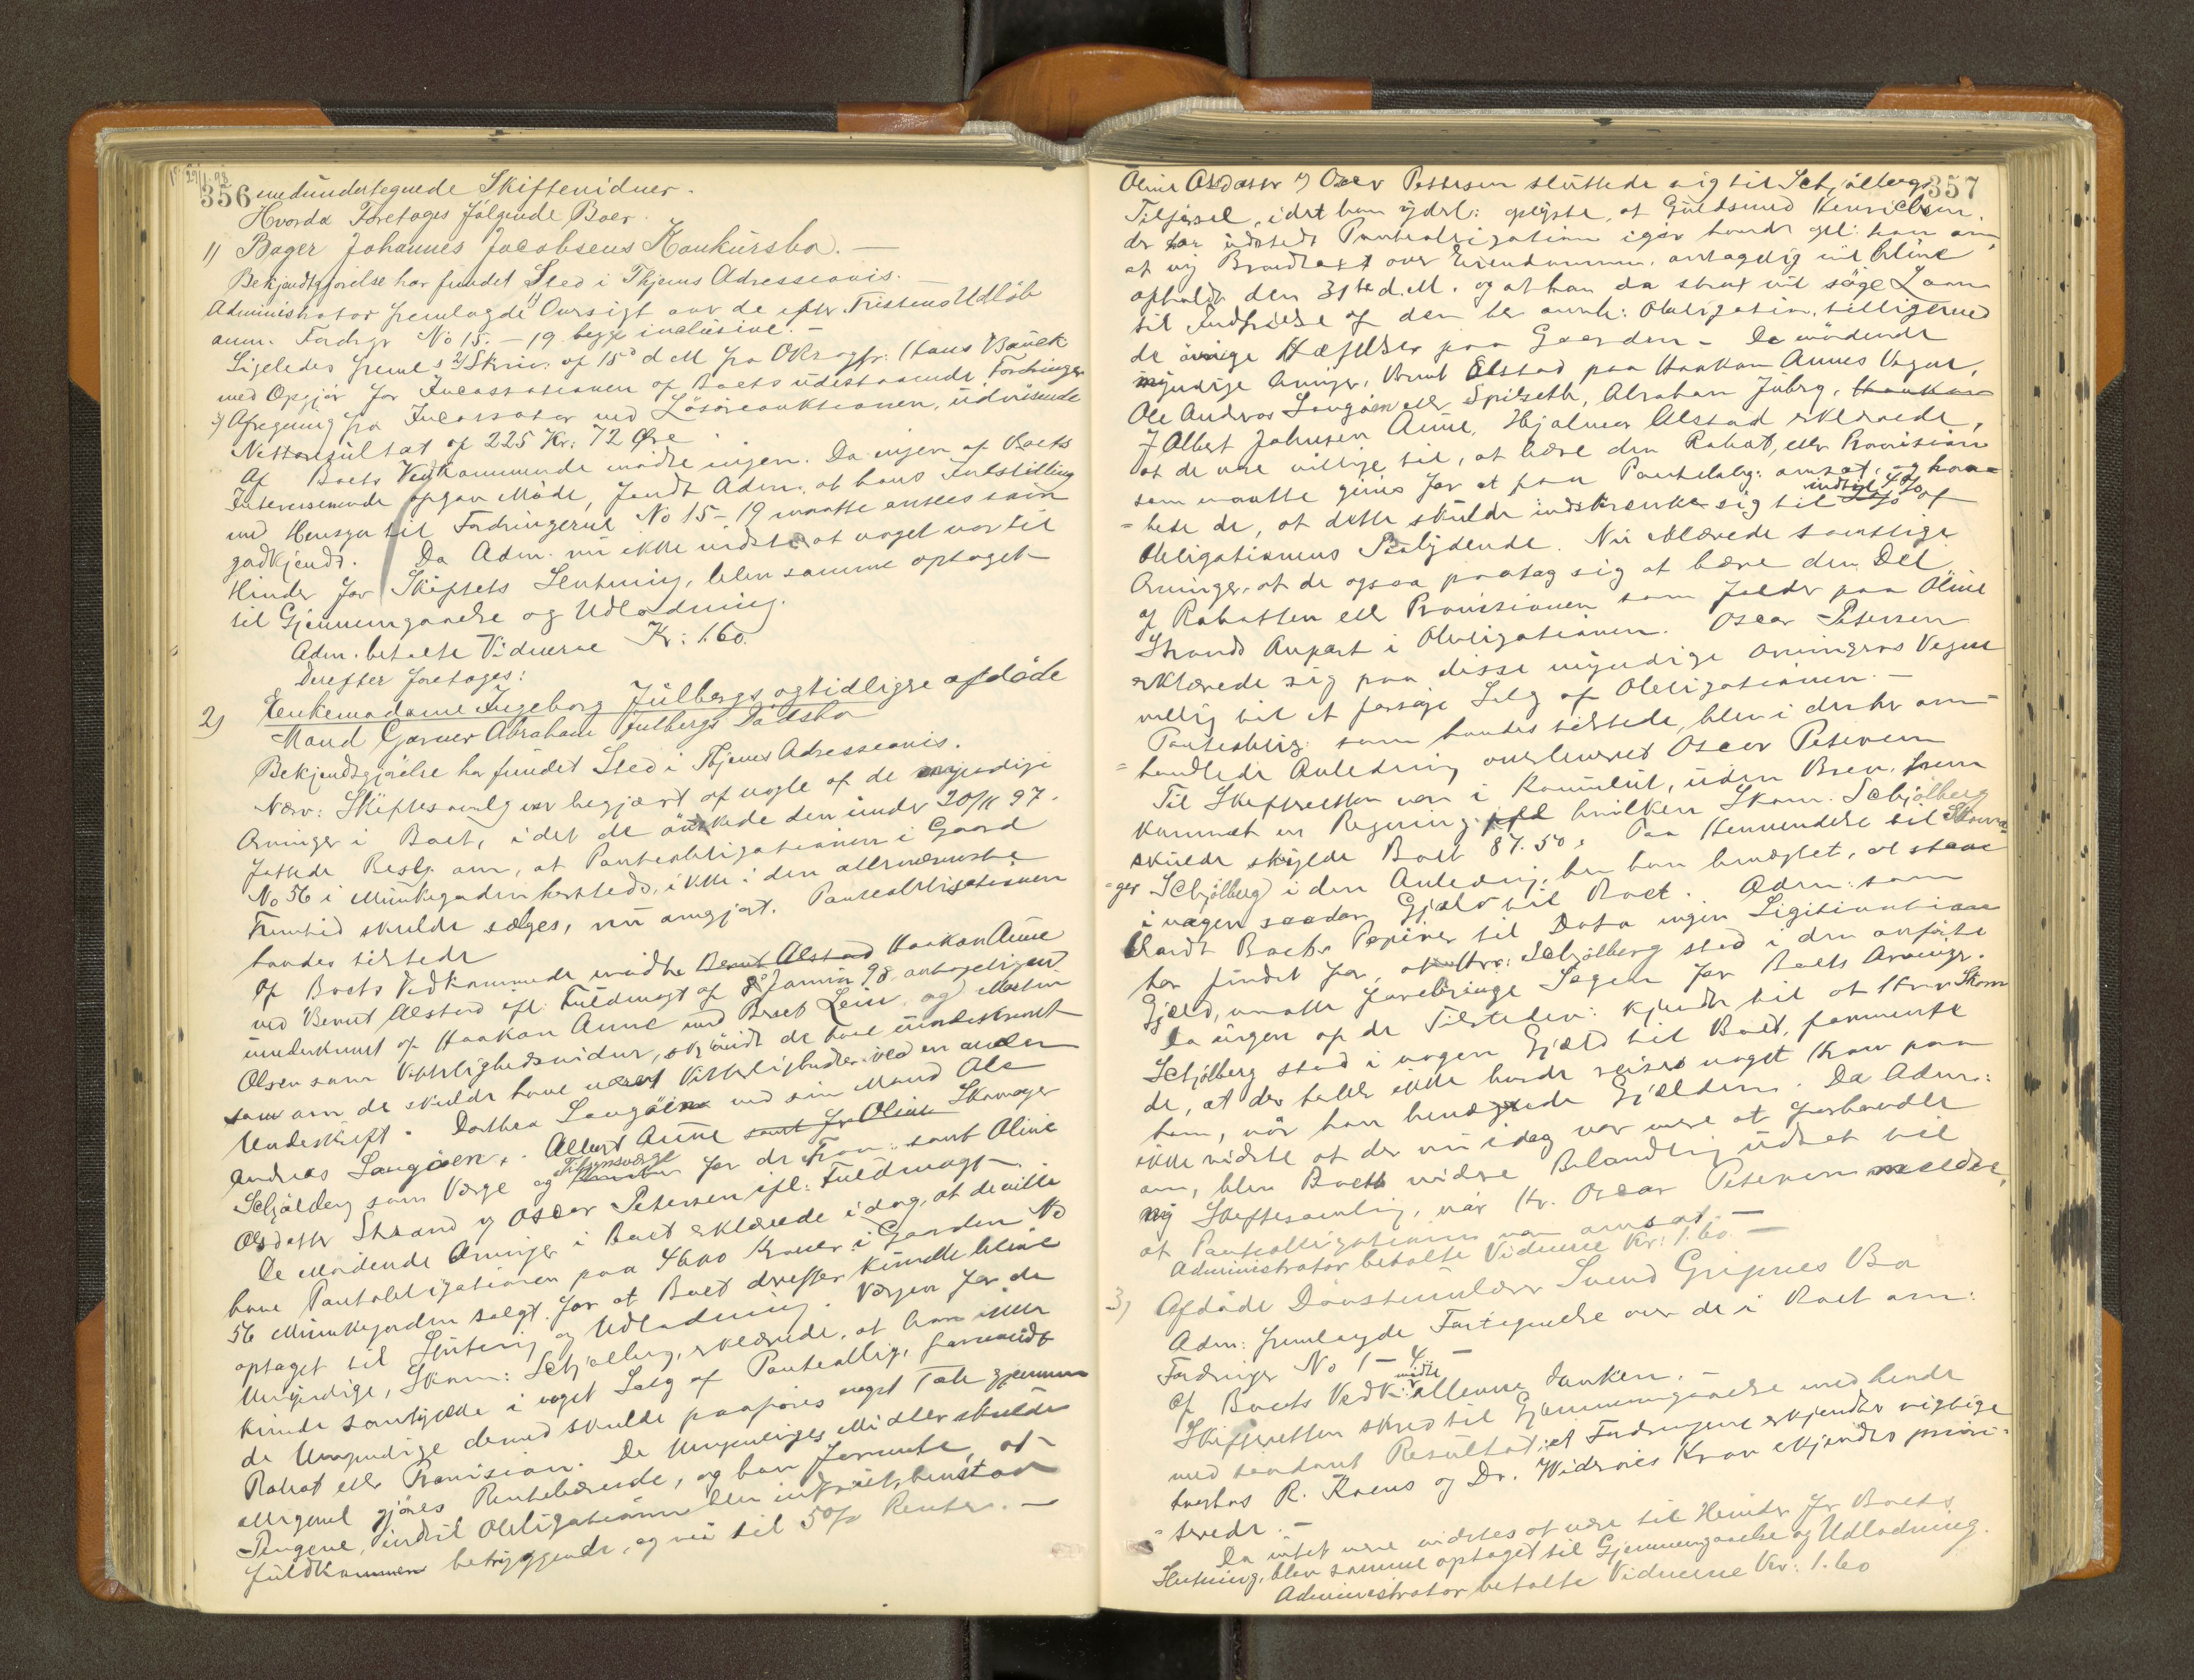 15/29/1.98
356 medundertegnede Skiftevidner.
Hvorda Foretoges følgende Boer.
1) Bager Johannes Jacobsens Konkursbo. —
Bekjendtgjørelse har fundet Sted i Thjems Adresseavis.
Administrator fremlagde 1) Oversigt over de efter Fristens Udløb
anm. Fordrgr No 15. – 19 begge inclusive. –
Ligeledes freml s 2) Skriv. af 15de d M fra OKragfr. Claus Bauck
med Opgjør for Incassationen af Boets udestaaende Fordringer
3) Afregning fra Incassator ved Løsøreauktionen, udvisende
Nettoresultat af 225 Kr: 72 Øre
Af Boets Vedkommende mødte ingen. Da ingen af Boets
Interesserede opgav Møde, fandt Adm. at hans Indstilling
med Hensyn til Fordringerne No 15 – 19 maatte ansees som
godkjendt. Da Adm. nu ikke vidste at noget var til
Hinder for Skiftets Slutning, blev samme optaget
til Gjennemgaaelse og Udlodning.
Adm. betalte Vidnerne Kr: 1.60
Derefter foretoges:
2) Enkemadame Ingeborg Julbergs og tidligere afdøde
Mand Garver Abraham Julbergs Dødsbo
Bekjendtgjørelse har fundet Sted i Thjems Adresseavis.
Nærv: Skiftesamlg var begjært af nogle af de myndige
Arvinger i Boet, idet de ønskede den under 20/11 97.
fattede Beslg. om, at Panteobligationen i Gaard
No 56 i Munkegaden herstedes, ikke i den allernærmeste
Fremtid skulde sælges, nu omgjort. Panteobligationen
havdes tilstede
Af Boets Vedkommende mødte Bernt Alstad Haakon Aune
ved Bernt Alstad ifl. Fuldmagt af 8de Januar 98 antagelig
underskrevet af Haakon Aune med Bernt Lein og Martin
Olsen som Vitterlighedsvidner, skjøndt de have underskrevet
som om de skulde have været Vitterlighedsv. ved en anden
Underskrift. Dorthea Langøien ved sin Mand Ole
Andreas Langøien, Albert Aune samt fr Oline Skomager
Schjølberg som Værge og Tilsynsværge for de Frav: samt Oline
Olsdatter Strand og Oscar Petersen ifl: Fuldmagt
De mødende Arvinger i Boet erklærede idag, at de ville
have Pantobligationen paa 4600 Kroner i Gaarden No
56 Munkegaden solgt for at Boet derefter kunde blive
optaget til Slutning og Udlodning. Værgen for de
Umyndige, Skom: Schjølberg, erklærede, at han ikke
kunde samtykke i noget Salg af Panteoblig, forsaavidt
de Umyndige derved skulde paaføres noget Tab gjennem
Rabat eller Provision. De Umyndiges Midler skulde
alligevel gjøres Rentebærende, og han formente, at
Pengene, indtil Obligationen blev indfriet, henstod
fuldkommen betryggende, og nu til 5% Renter. —
357
Oline Olsdatter og Oscar Pettersen sluttede sig til Schjølbergs
Tilførsel, idet han yderl: oplyste, at Guldsmed Henrichsen,
der har udstedt Pantobligation igaar havde opl: ham om,
at ny Brandtaxt over Eiendommen, antagelig vil blive
afholdt den 31te d. M. og at han da strax vil søge Laan
til Indfrielse af den her omh: Obligation, tilligemed
de øvrige Hæftelser paa Gaarden – De mødende
myndige Arvinger, Bernt Alstad paa Haakon Aunes Vegne,
Ole Andreas Langøien eller Spilseth, Abraham Juberg, Haakon
J Albert Johnsen Aune, Hjalmar Alstad erklærede,
at de vare villige til, at bære den Rabat, eller Provision
som maatte gives for at faa Panteoblg: omsat, og haa=
=bede de, at dette skulde indskrænke sig til indtil 4% af
Obligationens Paalydende. Nu erklærede samtlige
Arvinger, at de ogsaa paatog sig at bære den Del
af Rabatten eller Provisionen som falder paa Oline
Strands Anpart i Obligationen. Oscar Petersen
erklærede sig paa disse myndige Arvingers Vegne
villig til at forsøge Salg af Obligationen. —
Panteoblig: som havdes tilstede, blev i den her om=
=handlede Anledning overleveret Oscar Petersen
Til Skifteretten var i Konvolut, uden Brev, frem
kommet en Regning, ifl hvilken Skom. Schjølberg
skulde skylde Boet 87.50. Paa Henvendelse til Skoma=
=ger Schjølberg i den Anledng, har han benægtet, at staae
i nogen saadan Gjæld til Boet. Adm: som
blandt Boets Papirer til Dato ingen Legitimation
har fundet for, at Hr: Schjølberg stod i den anførte
Gjæld, maatte forebringe Sagen for Boets Arvinger.
Da ingen af de Tilstedev: kjendte til at Herr Skom
Schjølberg stod i nogen Gjæld til Boet, formente
de, at der heller ikke burde reises noget Krav paa
ham, naar han benægtede Gjælden. Da Adm:
ikke vidste at der nu idag var mere at forhandle
om, blev Boets videre Behandling udsat til
ny Skiftesamling, når Hr. Oscar Petersen melder,
at Panteobligationen var omsat. —
Administrator betalte Vidnerne Kr: 1.60 —
3) Afdøde Døvstumlærer Svend Gripnes Bo
Adm: fremlagde Fortegnelse over de i Boet anm:
Fordringer No 1 – 4 –
Af Boets Vedk: mødte alleene Enken. –
Skifteretten skred til Gjennemgaaelse med hende
med saadant Resultat, at Fordringerne erkjendtes rigtige
hvorhos R. Kaens og Dr. Widerøes Krav erkjendtes priori=
=terede. –
Da intet mere vidstes at være til Hinder for Boets
Slutning, blev samme optaget til Gjennemgaaelse og Udlodning.
Administrator betalte Vidnerne Kr: 1.60